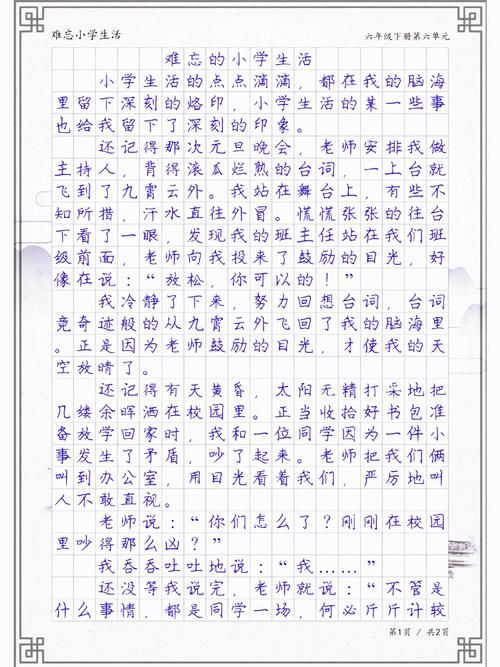 难忘小学生活
六年级下册第六单元
难忘的小学生活
小学生活的点点滴滴，都在我的脑海
里留下深刻的烙印，小学生活的某一些事
也给我留下了深刻的印象。
还记得那次元旦晚会，老师安排我做
主持人，背得滚瓜烂熟的台词，一上台就
飞到了九霄云外。我站在舞台上，有些不
知所措，汗水直往外冒。慌慌张张的往台
下看了一眼，发现我的班主任站在我们班
级前面，老师向我投来了鼓励的目光，好
像在说：“放松，你可以的！”
我冷静了下来，努力回想台词，台词
竞奇迹般的从九霄云外飞回了我的脑海里
。正是因为老师鼓励的目光，才使我的天
空放晴了。
还记得有天黄昏，太阳无精打采地把
几缕余晖洒在校园里。正当收拾好书包准
备放学回家时，我和一位同学因为一件小
事发生了矛盾，吵了起来。老师把我们俩
叫到办公室，用目光看着我们，严厉地叫
人不敢直视。
老师说：“你们怎么了？刚刚在校园
里吵得那么凶？”
我吞吞吐吐地说：“我……”
还没等我说完，老师就说：“不管是
什么事情，都是同学一场，何必斤斤计较
第1页 / 共2页